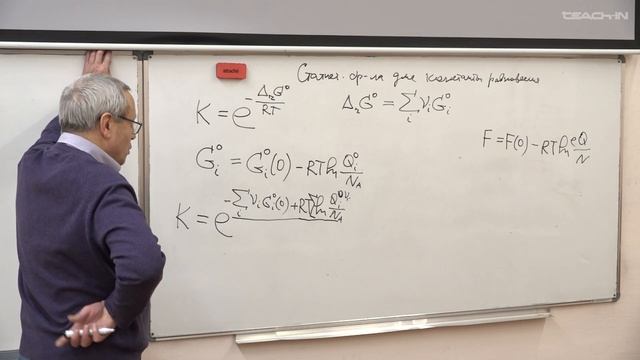 TEACH-IN
attache
Статист. ф-ла для константы равновесия
K = e^{-\frac{Δ_r G^o}{RT}}   Δ_r G^o = \sum_i ν_i G_i^o
F = F(0) - RT ln \frac{eQ}{N}
G_i^o = G_i^o(0) - RT ln \frac{Q_i^o}{N_A}
K = e^{-\sum_i ν_i G_i^o(0) + RT \sum ln \frac{Q_i^{o ν_i}}{N_A}}